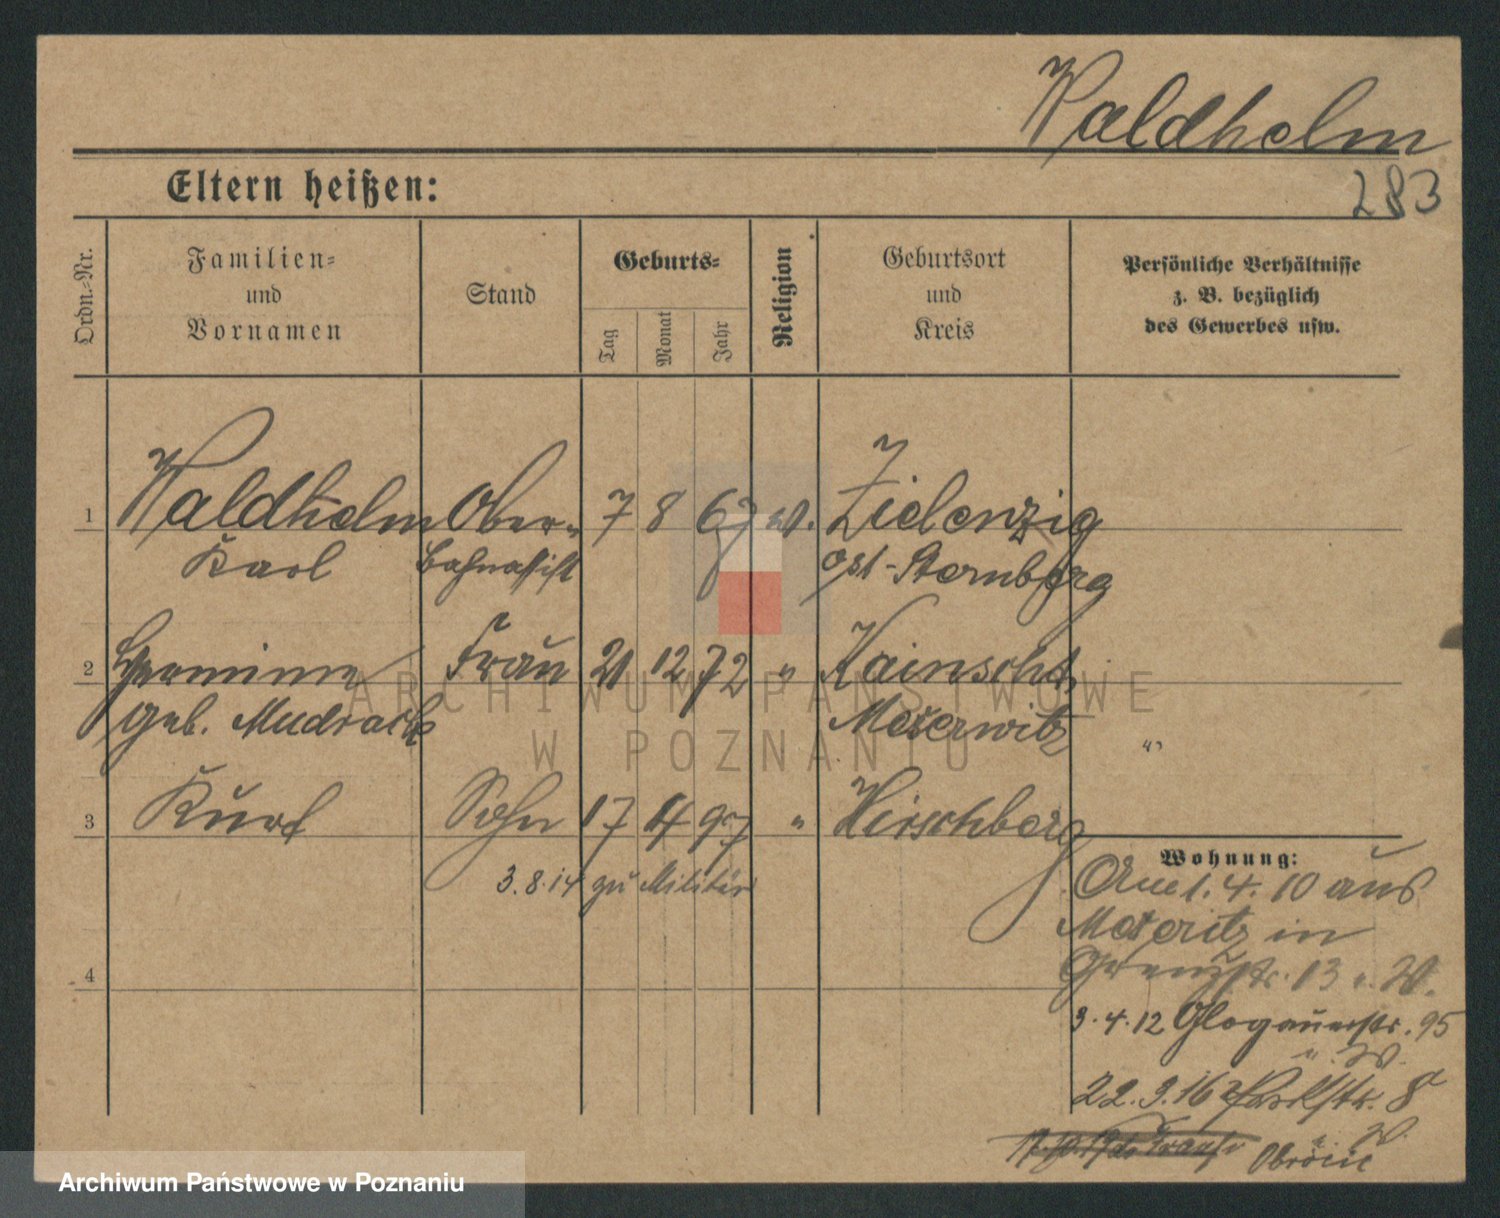 Waldhelm
283
Eltern heißen:
Ordn.-Nr.
Familien-
und
Vornamen
Stand
Geburts-
Tag
Monat
Jahr
Religion
Geburtsort
und
Kreis
Persönliche Verhältnisse
z. B. bezüglich
des Gewerbes usw.
1 Waldhelm Ober- 7 8 67 Zielenzig
Karl Bahnassist Ost-Sternberg
2 Hermine Frau 21 12 72 " Kainscht,
geb. Mudrack Meserwitz
"
3 Kurt Sohn 17 4 97 " Hirschberg
3.8.14 zu Militär
4
Wohnung:
Am 1. 4. 10 aus
Meseritz in
Grenzstr. 13
3.4.12 Glogauerstr. 95
22.3.16 Parkstr. 8
ARCHIWUM PAŃSTWOWE
W POZNANIU
Archiwum Państwowe w Poznaniu